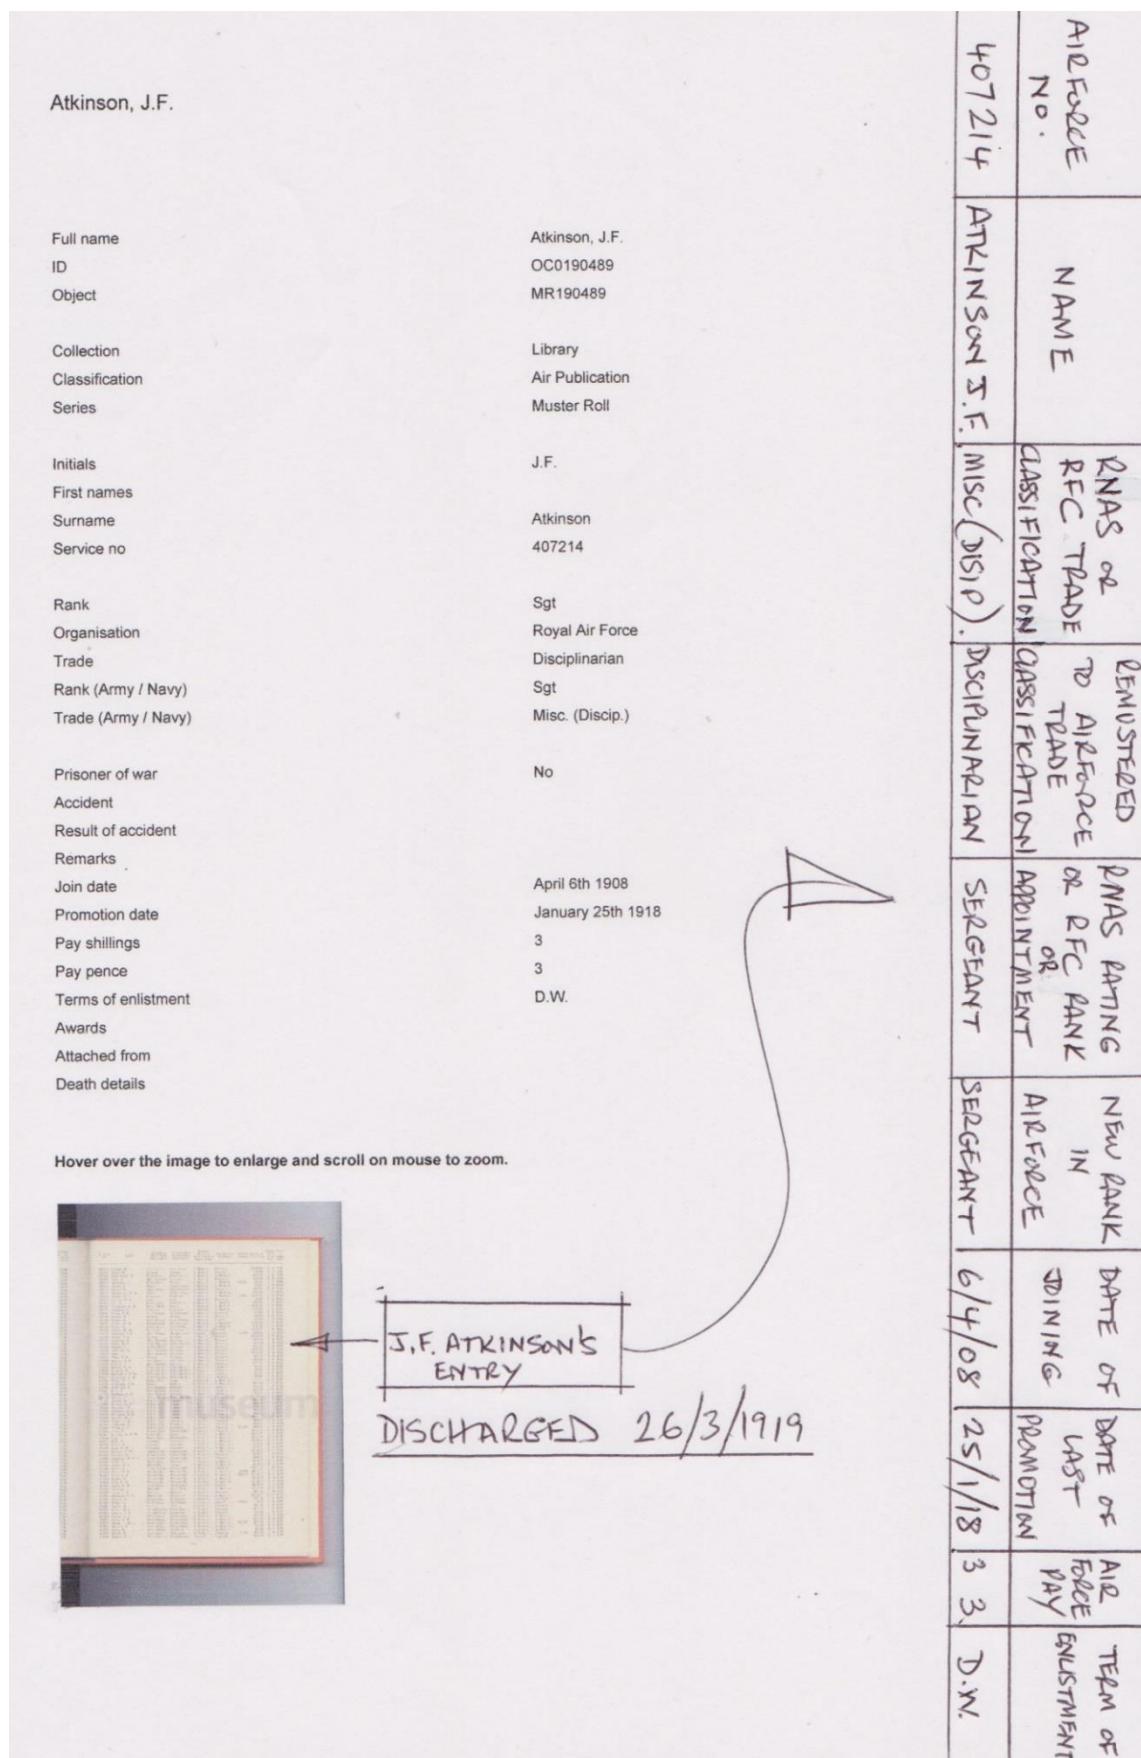 Atkinson, J.F.
Full name Atkinson, J.F.
ID OC0190489
Object MR190489
Collection Library
Classification Air Publication
Series Muster Roll
Initials J.F.
First names
Surname Atkinson
Service no 407214
Rank Sgt
Organisation Royal Air Force
Trade Disciplinarian
Rank (Army / Navy) Sgt
Trade (Army / Navy) Misc. (Discip.)
Prisoner of war No
Accident
Result of accident
Remarks
Join date April 6th 1908
Promotion date January 25th 1918
Pay shillings 3
Pay pence 3
Terms of enlistment D.W.
Awards
Attached from
Death details
Hover over the image to enlarge and scroll on mouse to zoom.
museum
J.F. ATKINSON'S
ENTRY
DISCHARGED 26/3/1919
AIRFORCE
NO.
407214
NAME
ATKINSON J.F.
RNAS OR
RFC TRADE
CLASSIFICATION
MISC (DISIP).
REMUSTERED
TO AIRFORCE
TRADE
CLASSIFICATION
DISCIPLINARIAN
RNAS RATING
OR RFC RANK
OR
APPOINTMENT
SERGEANT
NEW RANK
IN
AIRFORCE
SERGEANT
DATE OF
JOINING
6/4/08
DATE OF
LAST
PROMOTION
25/1/18
AIR
FORCE
PAY
3 3
TERM OF
ENLISTMENT
D.W.